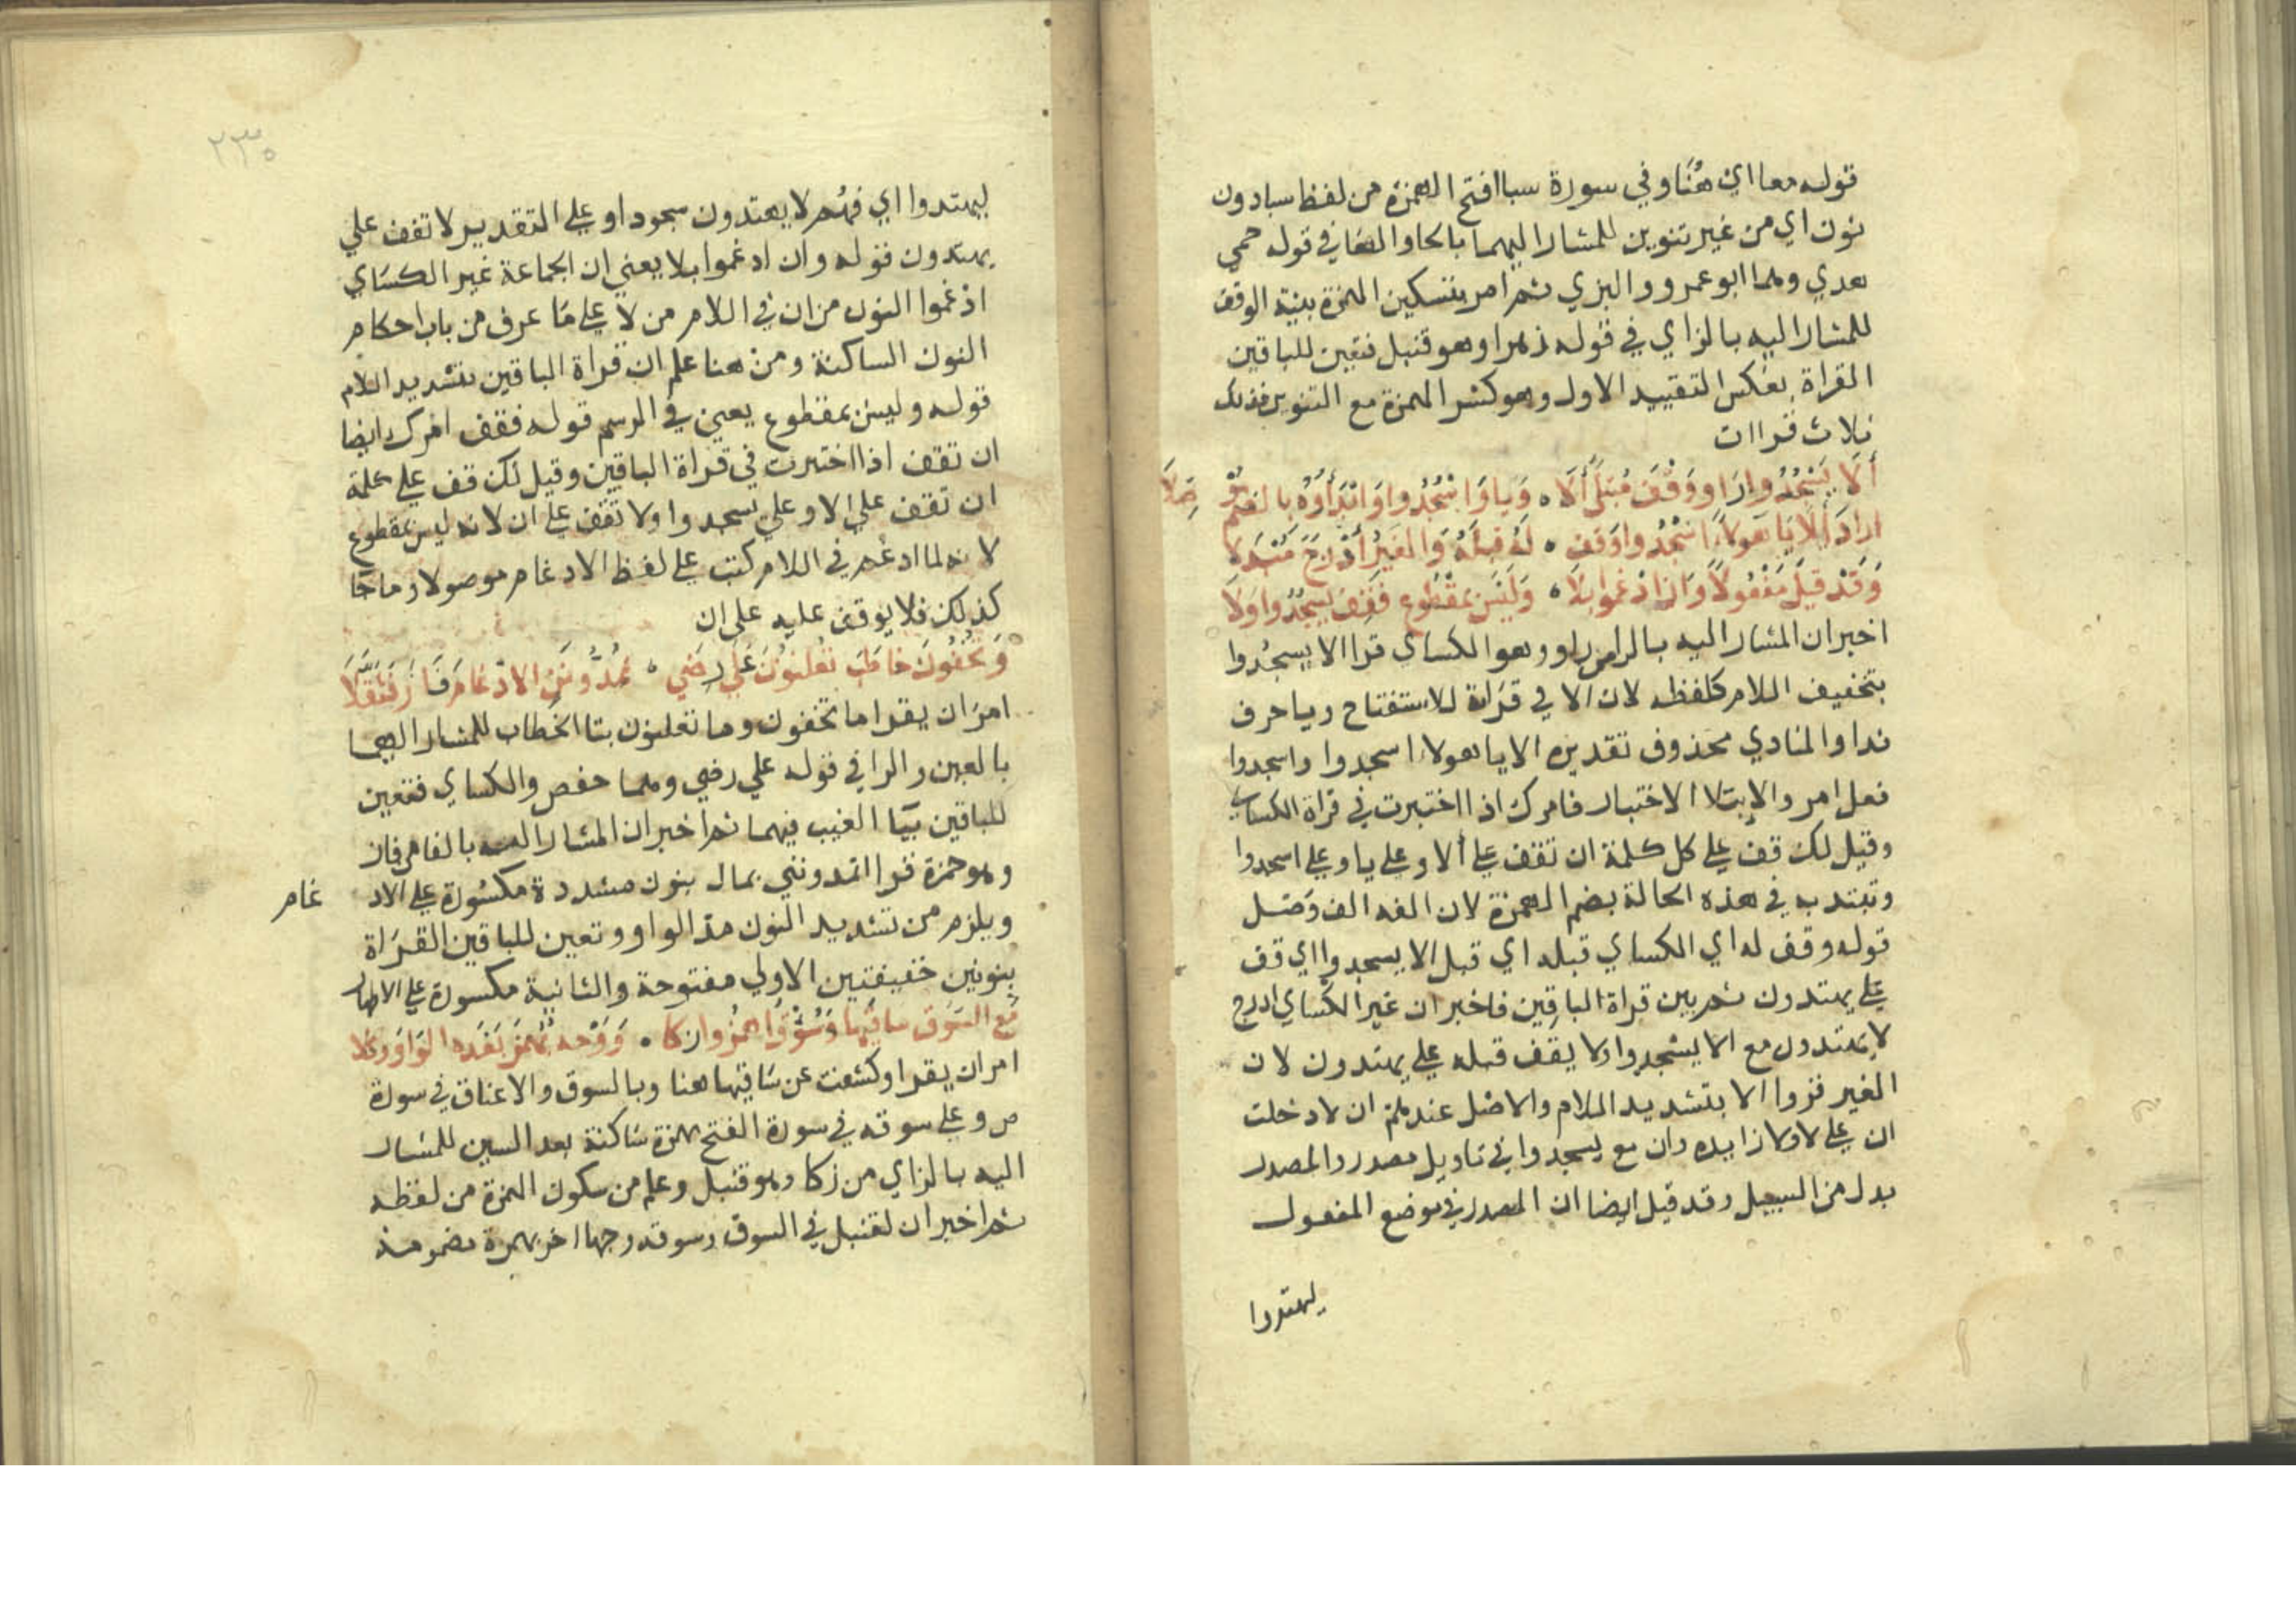 قوله معا اي هنا وفي سورة سبا افتح الهمزة من لفظ سبا دون
نون اي من غير تنوين للمشار اليهما بالحا والها في قوله حمى
هدي وهما ابو عمرو والبزي ثم امر بتسكين الهمزة بنية الوقف
للمشار اليه بالزاي في قوله زهرا وهو قنبل فتعين للباقين
القراة بعكس التقييد الاول وهو كسر الهمزة مع التنوين فذلك
ثلاث قراات
أَلَا يَسْجُدُوا رَاوٍ وَقِفْ مُبْتَلًى أَلَا ۰ وَيَا وَاسْجُدُوا وَابْدَأْهُ بِالضَّمِّ مُوصِلَا
اراد أَلَا يَا هَؤُلَاءِ اسْجُدُوا وَقِف ۰ لَهُ قَبْلَهُ وَالغَيْرُ أَدْرَجَ مُبْدِلَا
وَقَدْ قِيلَ مَفْعُولًا وَان ادْغَمُوا بِلَا ۰ وَلَيْسَ بِمَقْطُوعٍ فَقِفْ يَسْجُدُوا وَلَا
اخبر ان المشار اليه بالرا من راو وهو الكساي قرا الا يسجدوا
بتخفيف اللام كلفظه لان الا في قراة للاستفتاح ويا حرف
ندا والمنادي محذوف تقديره الا يا هولاء اسجدوا واسجدوا
فعل امر والابتلا الاختبار فامرك اذا اختبرت في قراة الكساي
وقيل لك قف على كل كلمة ان تقف على ألا وعلى يا وعلى اسجدوا
وتبتدي في هذه الحالة بضم الهمزة لان الفه الف وصل
قوله وقف له اي الكساي قبله اي قبل الا يسجدوا اي قف
على يهتدون ثم بين قراة الباقين فاخبر ان غير الكساي ادرج
لا يهتدون مع الا يسجدوا ولا يقف قبله على يهتدون لان
الغير قروا الا بتشديد اللام والاصل عندهم ان لا دخلت
ان على لا ولا زايده وان مع يسجدوا في تاويل مصدر والمصدر
بدل من السبيل وقد قيل ايضا ان المصدر في موضع المفعول
يهتدوا
٢٣٥
ليهتدوا اي فهم لا يهتدون سجودا وعلى التقدير لا تقف علي
يهتدون قوله وان ادغموا بلا يعني ان الجماعة غير الكساي
ادغموا النون من ان في اللام من لا على ما عرف من باب احكام
النون الساكنة ومن هنا علم ان قراة الباقين بتشديد اللام
قوله وليس بمقطوع يعني في الرسم قوله فقف امرك ايضا
ان تقف اذا اختبرت في قراة الباقين وقيل لك قف على كلمة
ان تقف على الا وعلى تسجدوا ولا تقف على ان لانه ليس بمقطوع
لانه لما ادغم في اللام كتب على لفظ الادغام موصولا وما جا
كذلك فلا يوقف عليه على ان
وَيُخْفُونَ خَاطِبْ تُعْلِنُونَ عَلَى رِضِي ۰ تُمِدُّونَنِي الادْغَامُ فَازَ فَثَقَّلَا
امر ان يقرا ما تخفون وما تعلنون بتا الخطاب للمشار اليهما
بالعين والرا في قوله على رضي وهما حفص والكساي فتعين
للباقين بيا الغيب فيهما ثم اخبر ان المشار اليه بالفا من فاز
وهو حمزة قرا اتمدونني بمال بنون مشددة مكسورة على الاد غام
ويلزم من تشديد النون مد الواو وتعين للباقين القراة
بنونين خفيفتين الاولي مفتوحة والثانية مكسورة على الاظهار
مَعَ السُوقِ سَاقَيْهَا وَسُوقِ اهْمِزُوا زَكَا ۰ وَوَجْه بِهَمْزٍ بَعْدَهُ الوَاوُ وُكِّلَا
امر ان يقرا وكشفت عن ساقيها هنا وبالسوق والاعناق في سورة
ص وعلى سوقه في سورة الفتح بهمزة ساكنة بعد السين للمشار
اليه بالزاي من زكا وهو قنبل وعلم من سكون الهمزة من لفظه
ثم اخبر ان لقنبل في السوق وسوقه وجها اخر بهمزة مضمومة